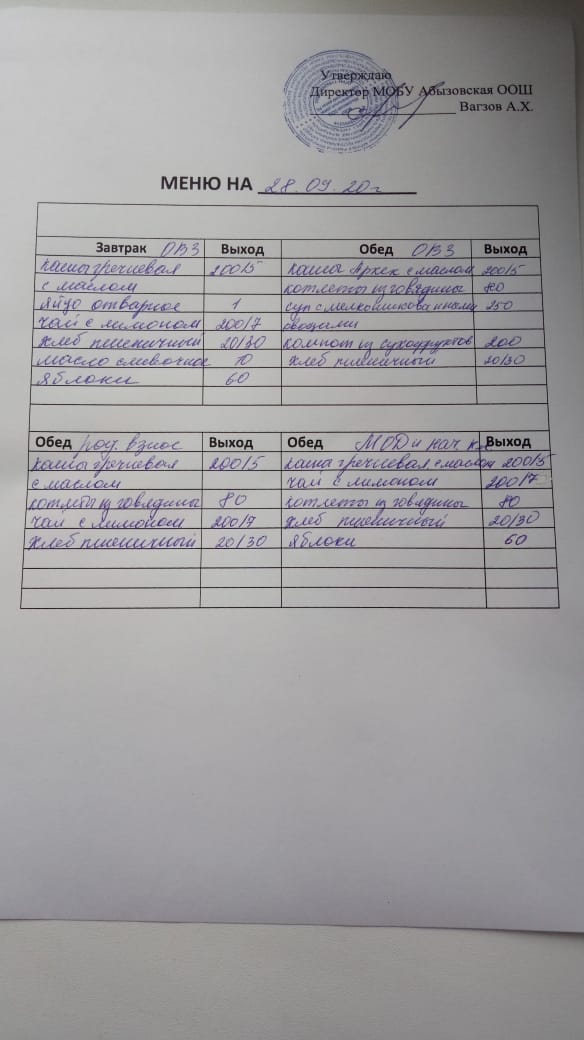 Утверждаю
Директор МОБУ Абызовская ООШ
Вагзов А.Х.
МЕНЮ НА 28.09.20г
Завтрак ОВЗ Выход Обед ОВЗ Выход
каша гречневая 200/5 каша Артек с маслом 200/5
с маслом котлеты из говядины 80
яйцо отварное 1 суп с мелкошинкованными 250
чай с лимоном 200/7 овощами
хлеб пшеничный 20/30 компот из сухофруктов 200
масло сливочное 10 хлеб пшеничный 20/30
яблоки 60
Обед род. взнос Выход Обед МОД и нач. кл Выход
каша гречневая 200/5 каша гречневая с маслом 200/5
с маслом чай с лимоном 200/7
котлеты из говядины 80 котлеты из говядины 80
чай с лимоном 200/7 хлеб пшеничный 20/30
хлеб пшеничный 20/30 яблоки 60